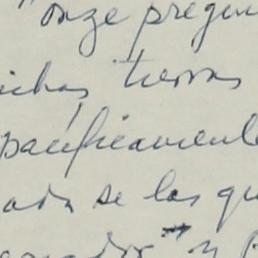 "onze pregun
ichas tierras
pacificamente
ada se las qu
" y